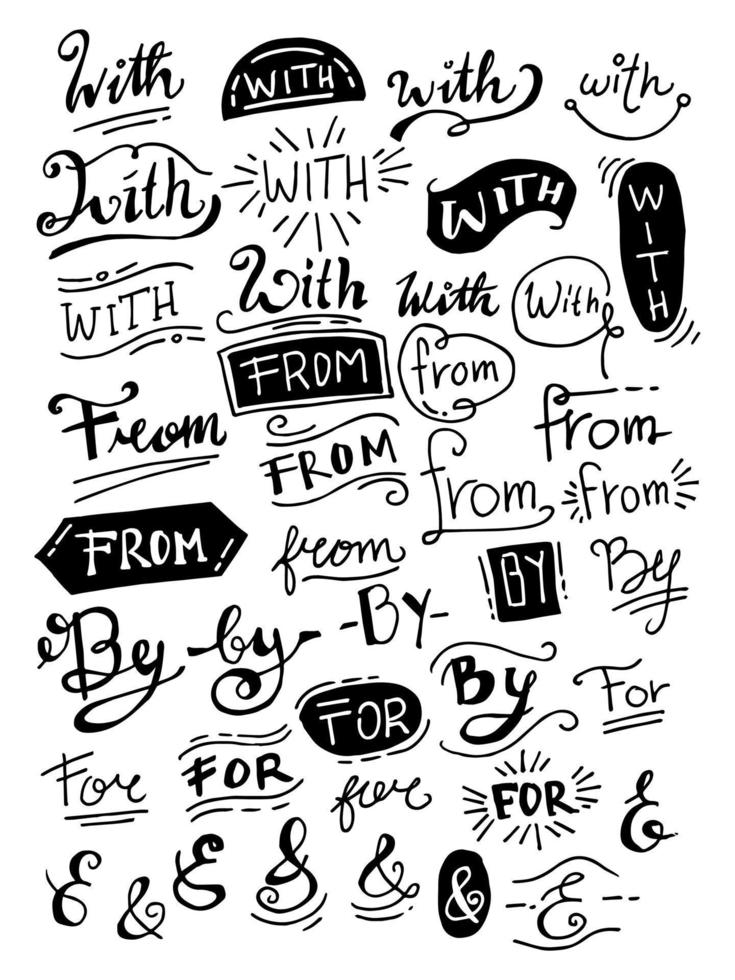 With WITH with with
With WITH WITH WITH
WITH With With With
FROM from
From FROM from from
from
FROM from BY By
By by -BY-
By For
FOR
For FOR for FOR &
& & & & & & &